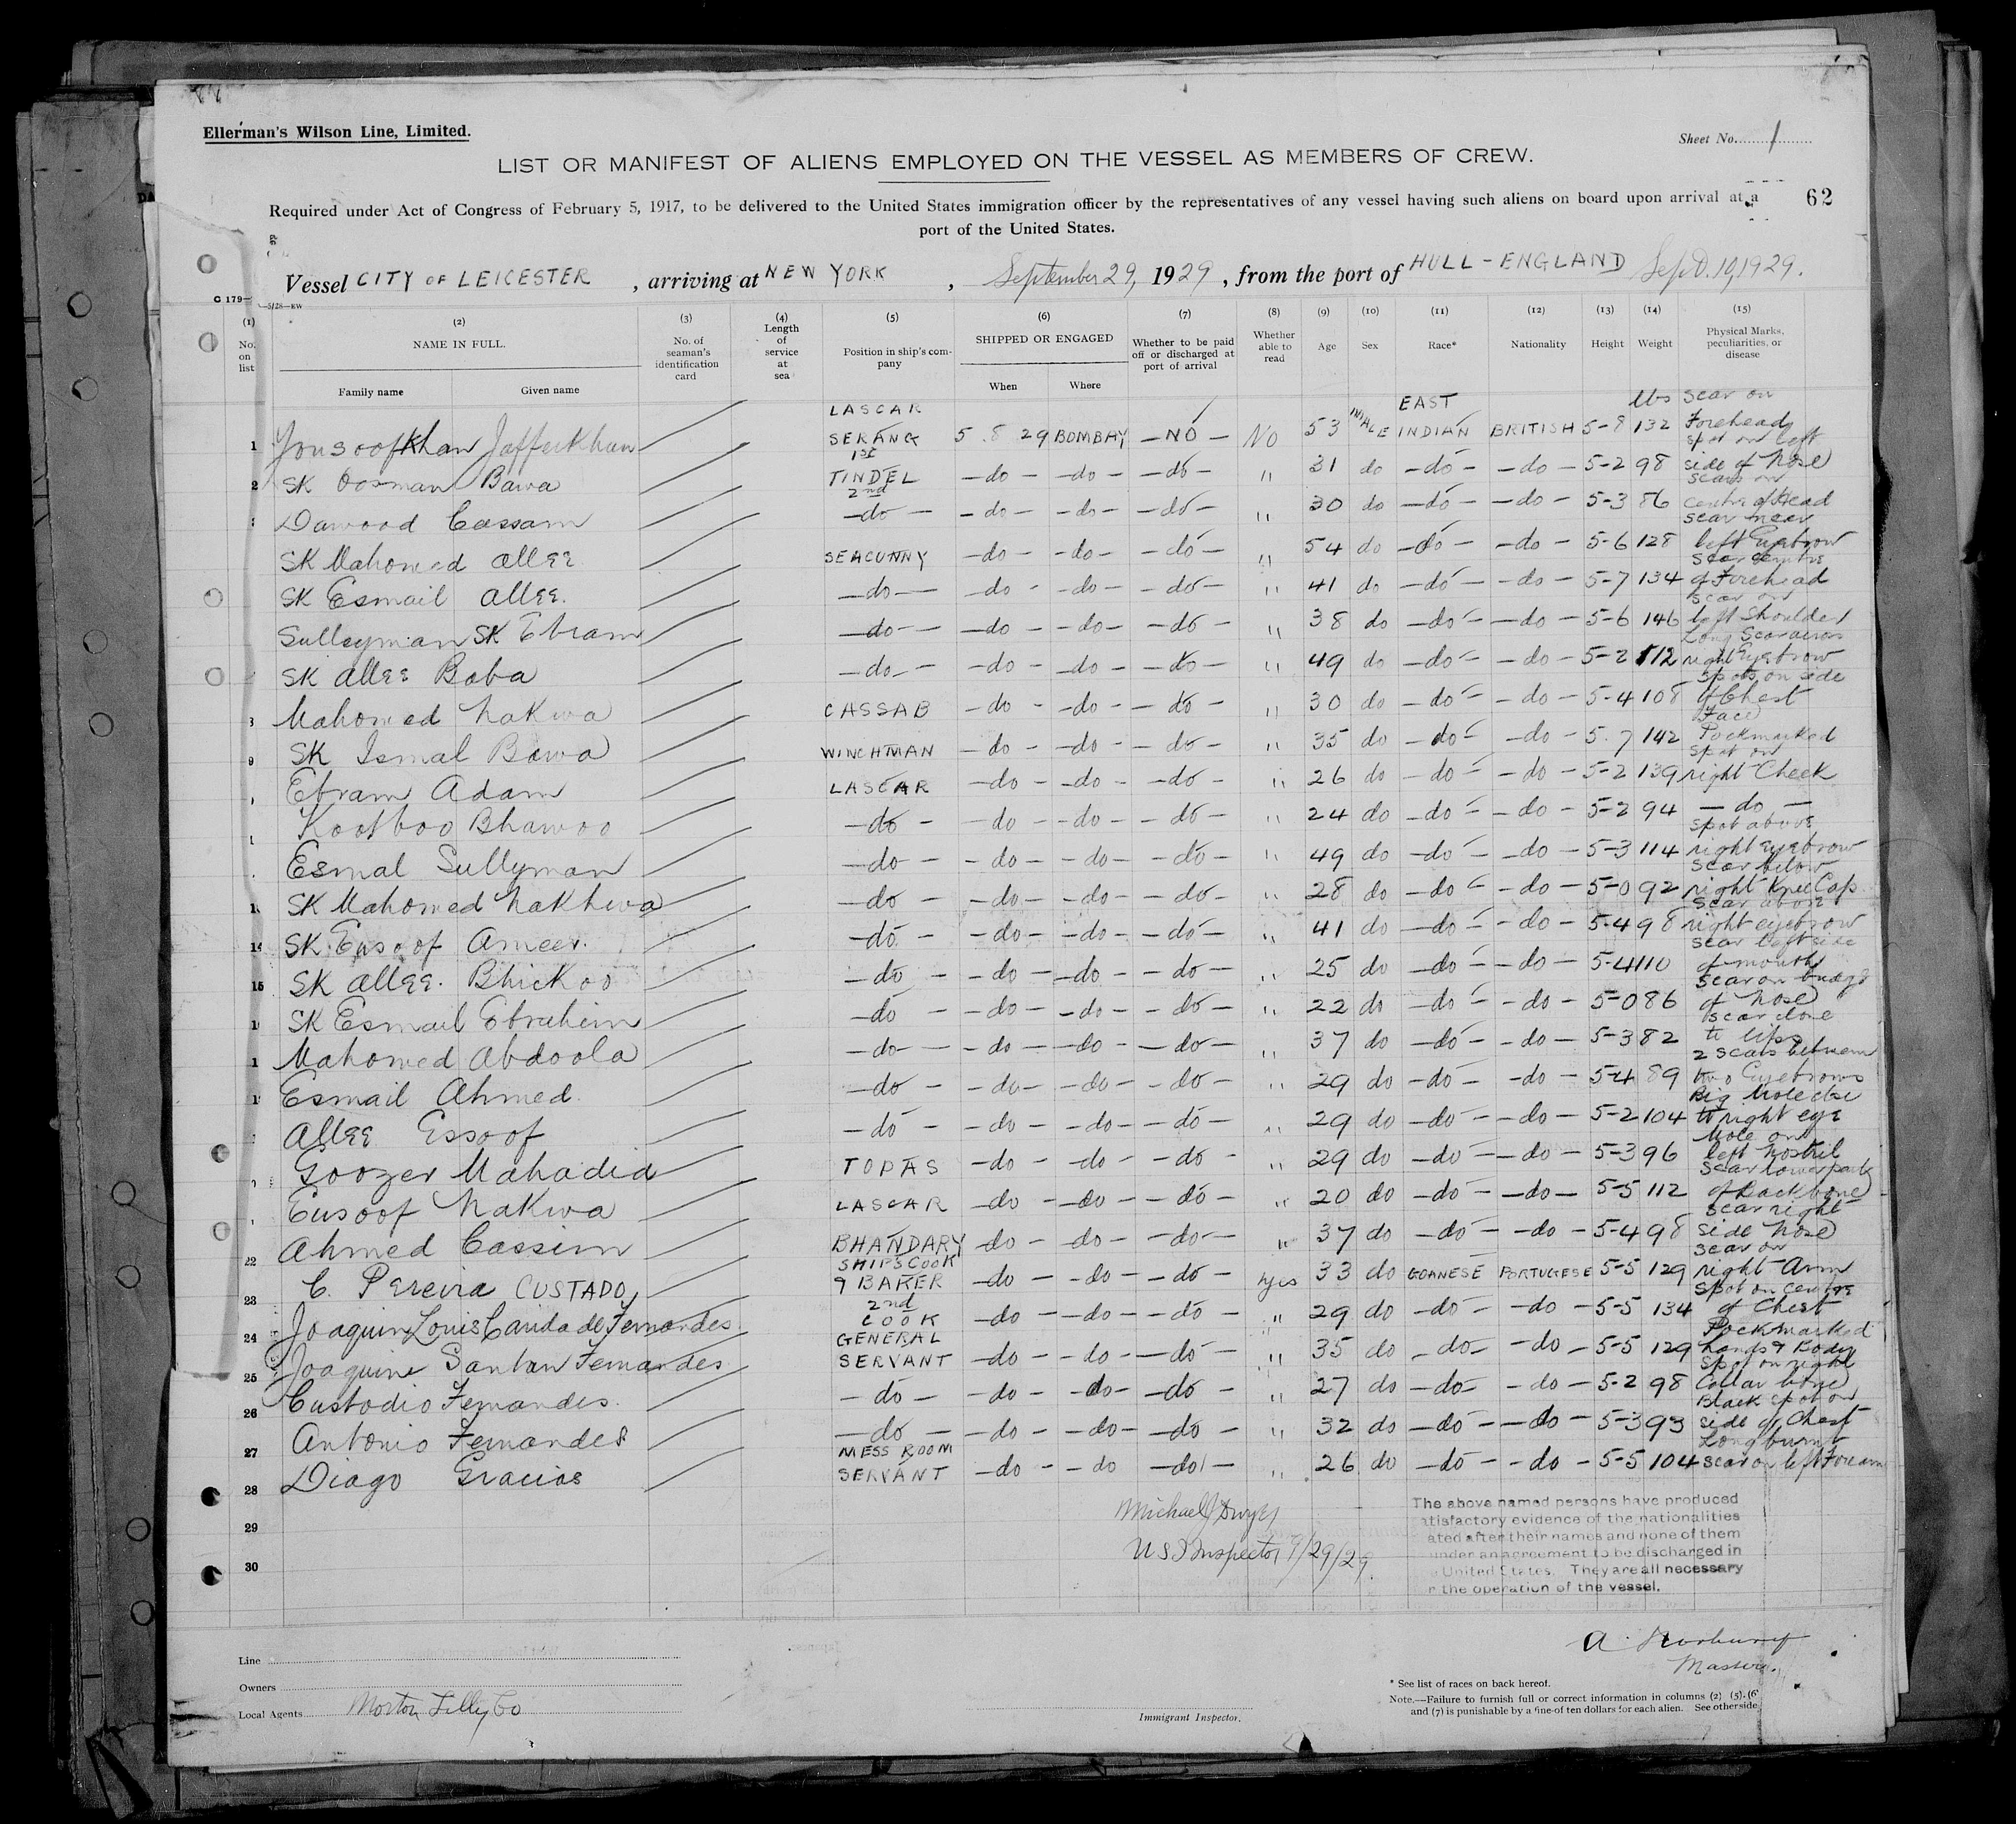 Ellerman's Wilson Line, Limited.
Sheet No. 1
LIST OR MANIFEST OF ALIENS EMPLOYED ON THE VESSEL AS MEMBERS OF CREW.
62
Required under Act of Congress of February 5, 1917, to be delivered to the United States immigration officer by the representatives of any vessel having such aliens on board upon arrival at a
port of the United States.
Vessel CITY OF LEICESTER , arriving at NEW YORK , September 29, 1929 , from the port of HULL - ENGLAND Sept. 10, 1929.
C 179—5/28—EW
(1) No. on list (2) NAME IN FULL. Family name Given name (3) No. of seaman's identification card (4) Length of service at sea (5) Position in ship's company (6) SHIPPED OR ENGAGED When Where (7) Whether to be paid off or discharged at port of arrival (8) Whether able to read (9) Age (10) Sex (11) Race* (12) Nationality (13) Height (14) Weight (15) Physical Marks, peculiarities, or disease
1 Yousoofkhan Jafferkhan LASCAR SERANG 5.8 29 BOMBAY — NO — NO 53 MALE EAST INDIAN BRITISH 5-8 lbs 132 scar on Forehead
2 SK Oosman Bawa 1st TINDEL —do— —do— —do— " 31 do —do— —do— 5-2 98 spot on left side of Nose
Dawood Cassam 2nd —do— —do— —do— —do— " 30 do —do— —do— 5-3 86 scars on centre of Head
SK Mahomed allee SEACUNNY —do— —do— —do— " 54 do —do— —do— 5-6 128 scar near left Eyebrow
SK Esmail allee. —do— —do— —do— —do— " 41 do —do— —do— 5-7 134 scar centre of Forehead
Sulleyman SK Ebram —do— —do— —do— —do— " 38 do —do— —do— 5-6 146 scar on left Shoulder
SK allee Baba —do— —do— —do— —do— " 49 do —do— —do— 5-2 112 Long Scar across right Eyebrow
8 Mahomed Nakwa CASSAB —do— —do— —do— " 30 do —do— —do— 5-4 108 spots on side of Chest
9 SK Ismal Bawa WINCHMAN —do— —do— —do— " 35 do —do— —do— 5.7 142 Face Pockmarked
Ebram Adam LASCAR —do— —do— —do— " 26 do —do— —do— 5-2 139 spot on right Cheek
Kootboo Bhawoo —do— —do— —do— —do— " 24 do —do— —do— 5-2 94 —do—
Esmal Sullyman —do— —do— —do— —do— " 49 do —do— —do— 5-3 114 spot above right eyebrow
SK Mahomed Nakhwa —do— —do— —do— —do— " 28 do —do— —do— 5-0 92 scar below right Knee Cap
14 SK Eusoof Ameer. —do— —do— —do— —do— " 41 do —do— —do— 5-4 98 scar above right eyebrow
15 SK allee. Bhickoo —do— —do— —do— —do— " 25 do —do— —do— 5-4 110 scar left side of mouth
SK Esmail Ebrahim —do— —do— —do— —do— " 22 do —do— —do— 5-0 86 scar on bridge of Nose
Mahomed Abdoola —do— —do— —do— —do— " 37 do —do— —do— 5-3 82 scar close to lips
Esmail Ahmed. —do— —do— —do— —do— " 29 do —do— —do— 5-4 89 2 scars between two Eyebrows
Allee Essoof —do— —do— —do— —do— " 29 do —do— —do— 5-2 104 Big Mole close to right eye
Goozer Mahadia TOPAS —do— —do— —do— " 29 do —do— —do— 5-3 96 Mole on left Nostril
Eusoof Nakwa LASCAR —do— —do— —do— " 20 do —do— —do— 5-5 112 scar lower part of backbone
22 Ahmed Cassim BHANDARY —do— —do— —do— " 37 do —do— —do— 5-4 98 scar right side Nose
23 C. Pereira CUSTADO SHIP'S COOK & BAKER —do— —do— —do— Yes 33 do GOANESE PORTUGESE 5-5 129 scar on right Arm
24 Joaquim Louis Carida de Fernandes 2nd COOK —do— —do— —do— " 29 do —do— —do— 5-5 134 spot on centre of Chest
25 Joaquine Santan Fernandes GENERAL SERVANT —do— —do— —do— " 35 do —do— —do— 5-5 129 Pockmarked hands & Body
26 Custodio Fernandes. —do— —do— —do— —do— " 27 do —do— —do— 5-2 98 spot on right Collar bone
27 Antonio Fernandes —do— —do— —do— —do— " 32 do —do— —do— 5-3 93 Black spot on side of Chest
28 Diago Gracias MESS ROOM SERVANT —do— —do— —do— " 26 do —do— —do— 5-5 104 Long burnt scar on left Forearm
29
30
Michael J Dwyer
U S I Inspector 9/29/29.
The above named persons have produced
atisfactory evidence of the nationalities
ated after their names and none of them
under an agreement to be discharged in
United States. They are all necessary
r the operation of the vessel.
Line
Owners
Local Agents Morton Lilly Co
Immigrant Inspector.
Master.
* See list of races on back hereof.
Note.—Failure to furnish full or correct information in columns (2) (5), (6
and (7) is punishable by a fine of ten dollars for each alien. See otherside